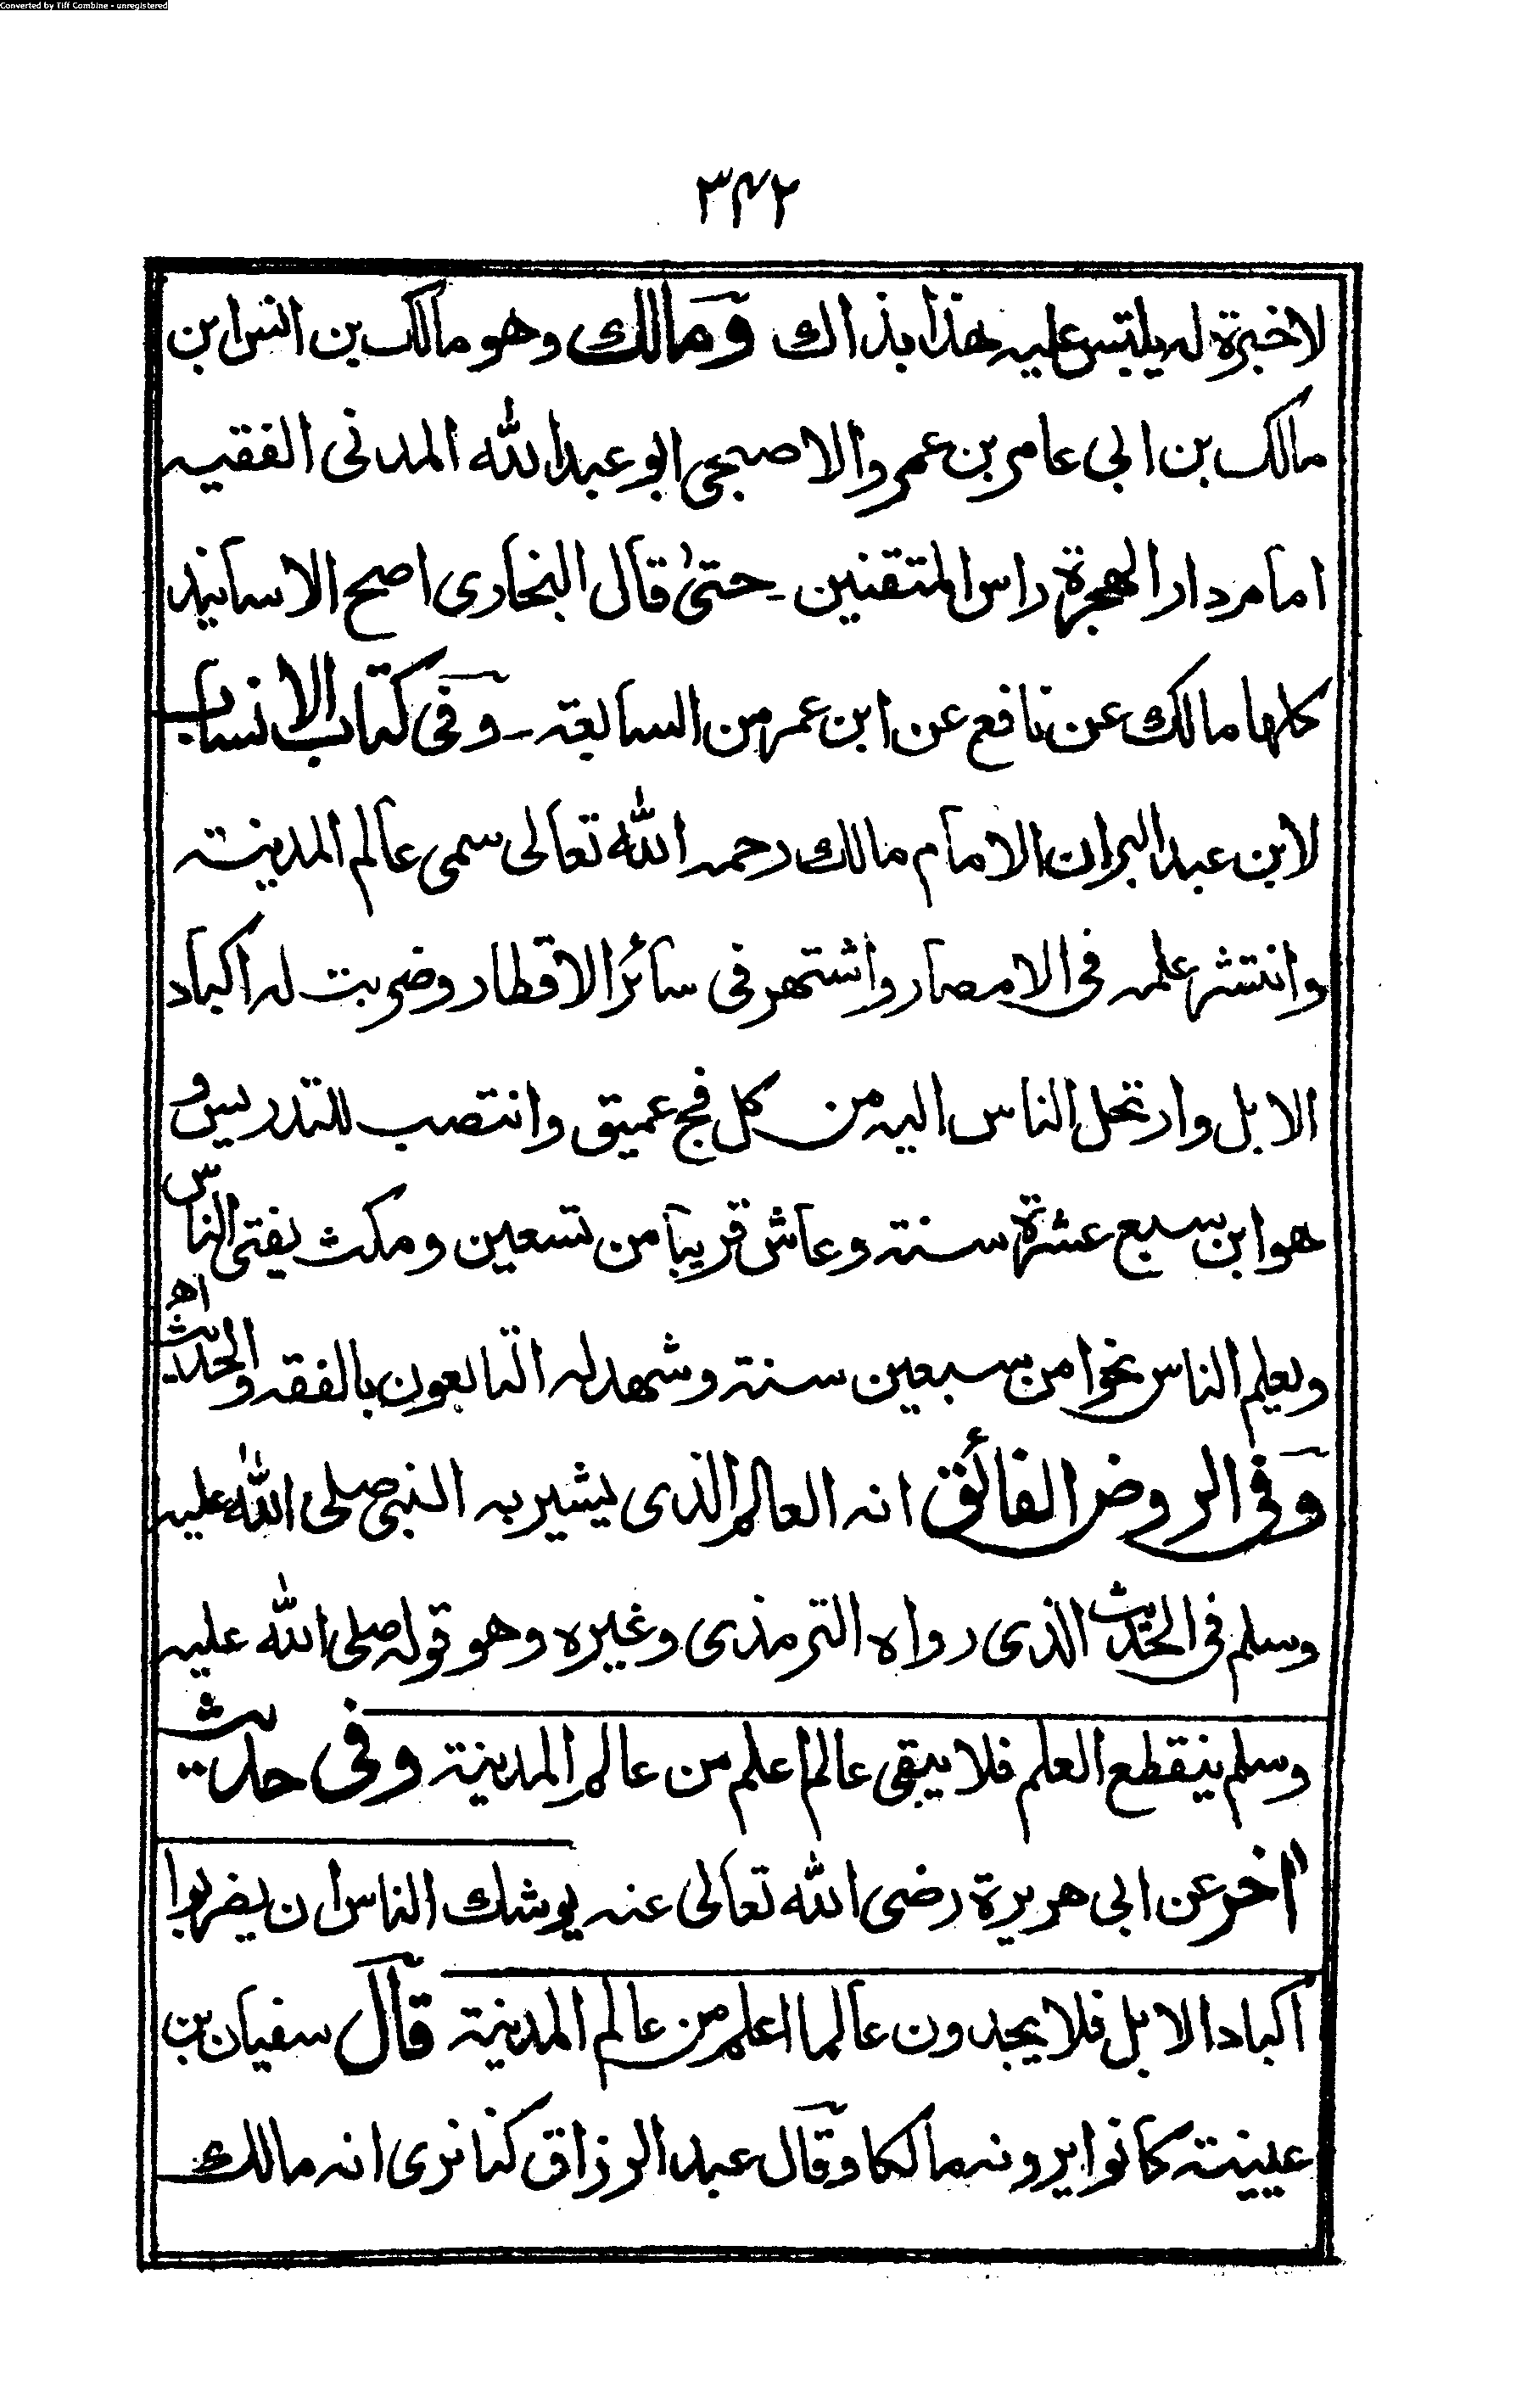 Converted by Tiff Combine - unregistered
٣٤٢
لا خبرة له يلتبس عليه هذا بذاك ومالك وهو مالك بن انس ابن
مالك بن ابی عامر بن عمرو الاصبحی ابو عبد الله المدنی الفقیه
امام دار الهجرة راس المتقنین۔ حتیٰ قال البخاری اصح الاسانید
کلها مالك عن نافع عن ابن عمر من السابعة۔ وفی کتاب الانساب
لابن عبد البر ان الامام مالك رحمه الله تعالی سمی عالم المدینة
وانتشر علمه فی الامصار واشتهر فی سائر الاقطار وضربت له اکباد
الابل وارتحل الناس الیه من کل فج عمیق وانتصب للتدریس و
هو ابن سبع عشرة سنة وعاش قریبا من تسعین ومکث یفتی الناس
ویعلم الناس نحوا من سبعین سنة وشهد له التابعون بالفقه والحدیث اھ
وفی الروض الفائق انه العالم الذی یشیر به النبی صلی الله علیه
وسلم فی الحدیث الذی رواه الترمذی وغیره وهو قوله صلی الله علیه
وسلم ینقطع العلم فلا یبقی عالم اعلم من عالم المدینة وفی حدیث
اخر عن ابی هریرة رضی الله تعالی عنه یوشك الناس ان یضربوا
اکباد الابل فلا یجدون عالما اعلم من عالم المدینة قال سفیان بن
عیینة کانوا یرونه مالکا وقال عبد الرزاق کنا نری انه مالك